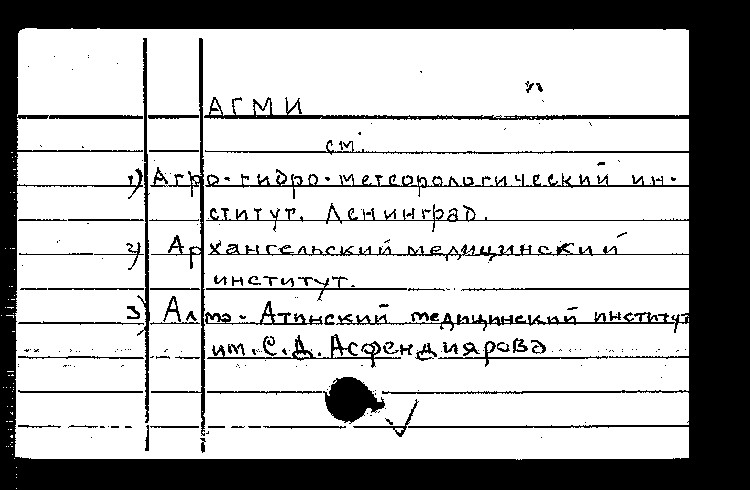 АГМИ
см.
1) Агро-гидро-метеорологический ин-
ститут. Ленинград.
2) Архангельский медицинский
институт.
3) Алма-Атинский медицинский институт
им. С.Д. Асфендиярова